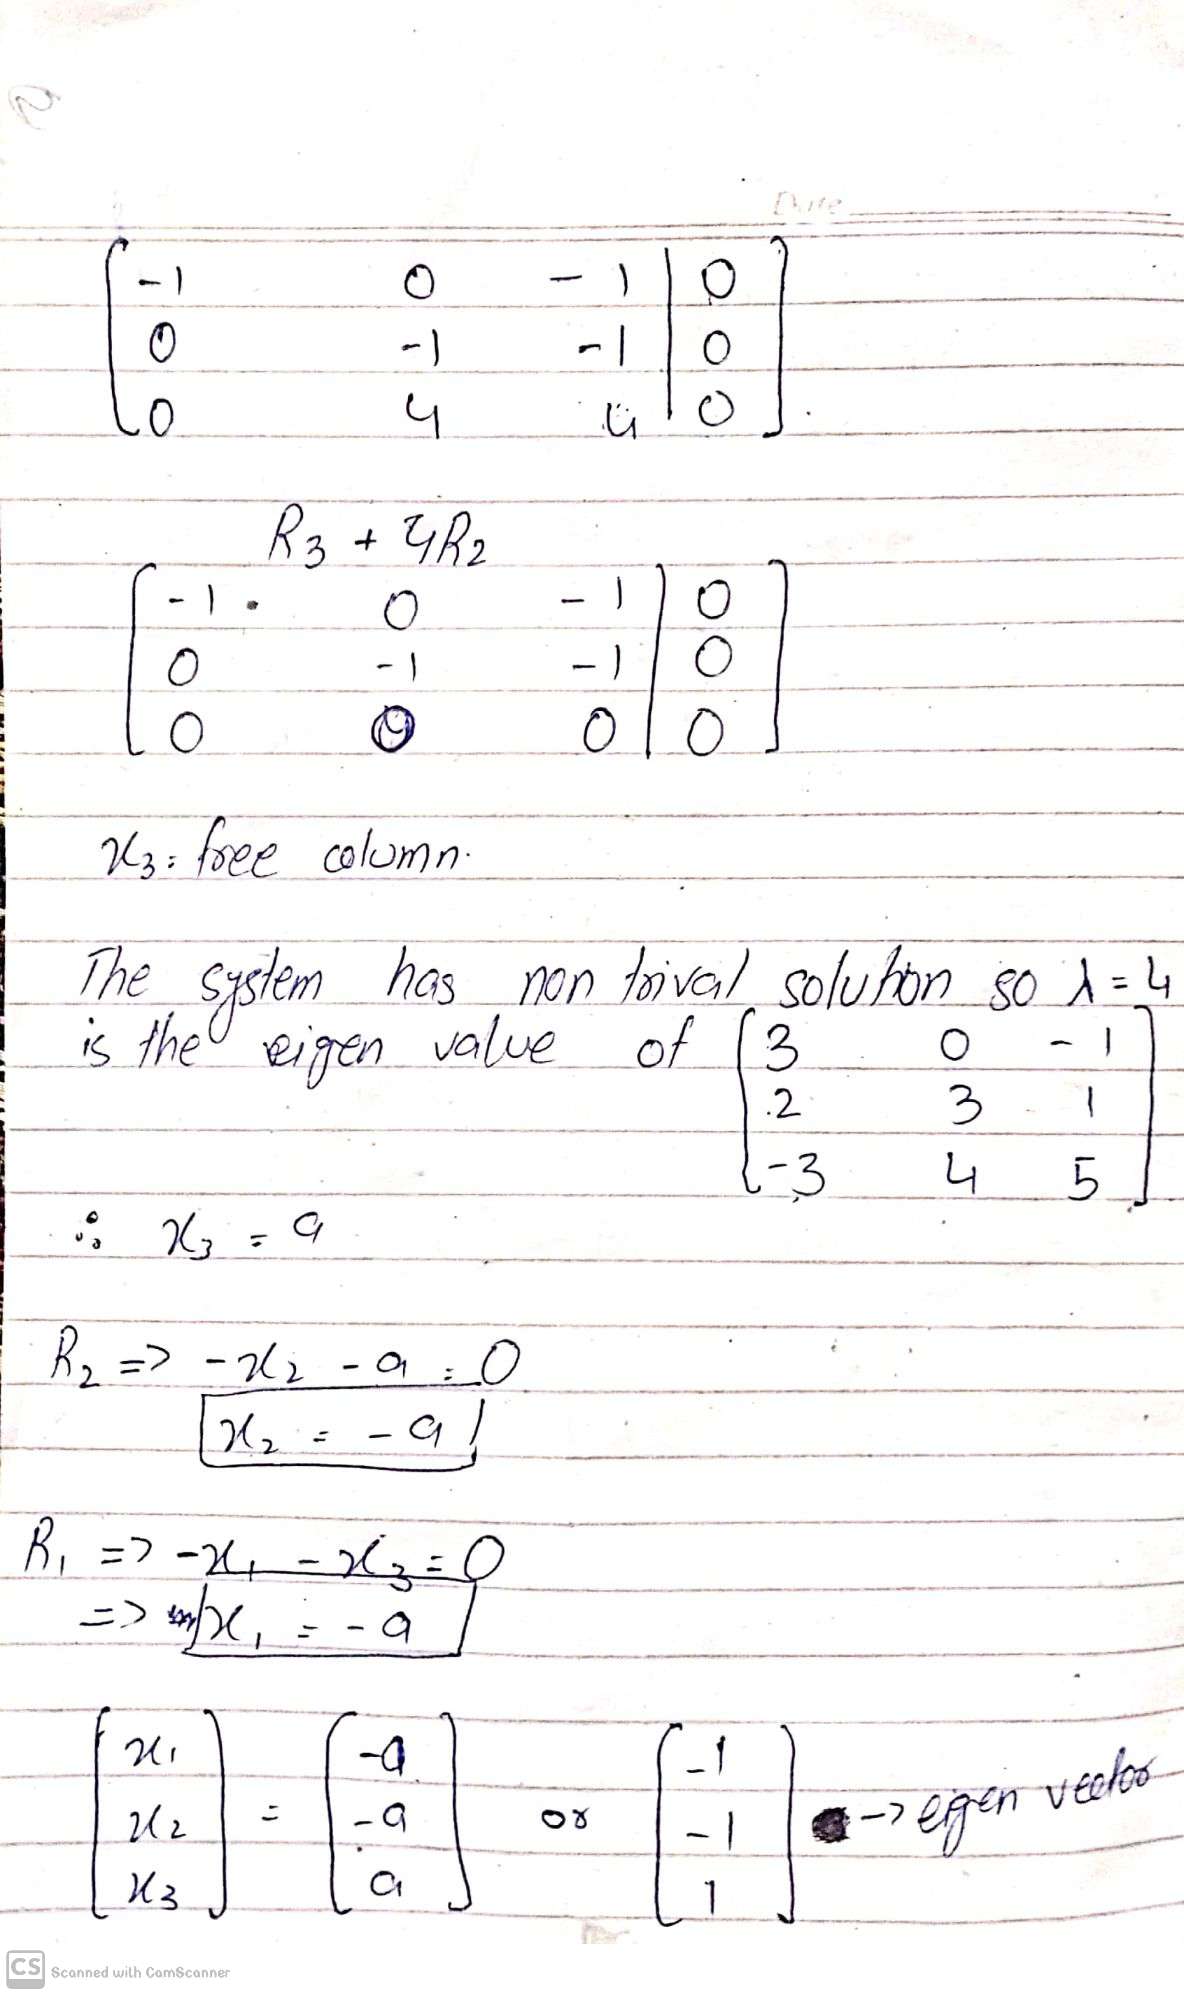 Date
[ -1 0 -1 | 0 ]
[ 0 -1 -1 | 0 ]
[ 0 4 4 | 0 ].
R3 + 4R2
[ -1 0 -1 | 0 ]
[ 0 -1 -1 | 0 ]
[ 0 0 0 | 0 ]
x3 = free column.
The system has non trival solution so λ = 4
is the eigen value of [ 3 0 -1 ]
[ 2 3 1 ]
[ -3 4 5 ]
∴ x3 = a
R2 => -x2 - a = 0
x2 = -a
R1 => -x1 - x3 = 0
=> x1 = -a
[ x1 ] [ -a ] [ -1 ]
[ x2 ] = [ -a ] or [ -1 ] -> eigen vector
[ x3 ] [ a ] [ 1 ]
CS Scanned with CamScanner